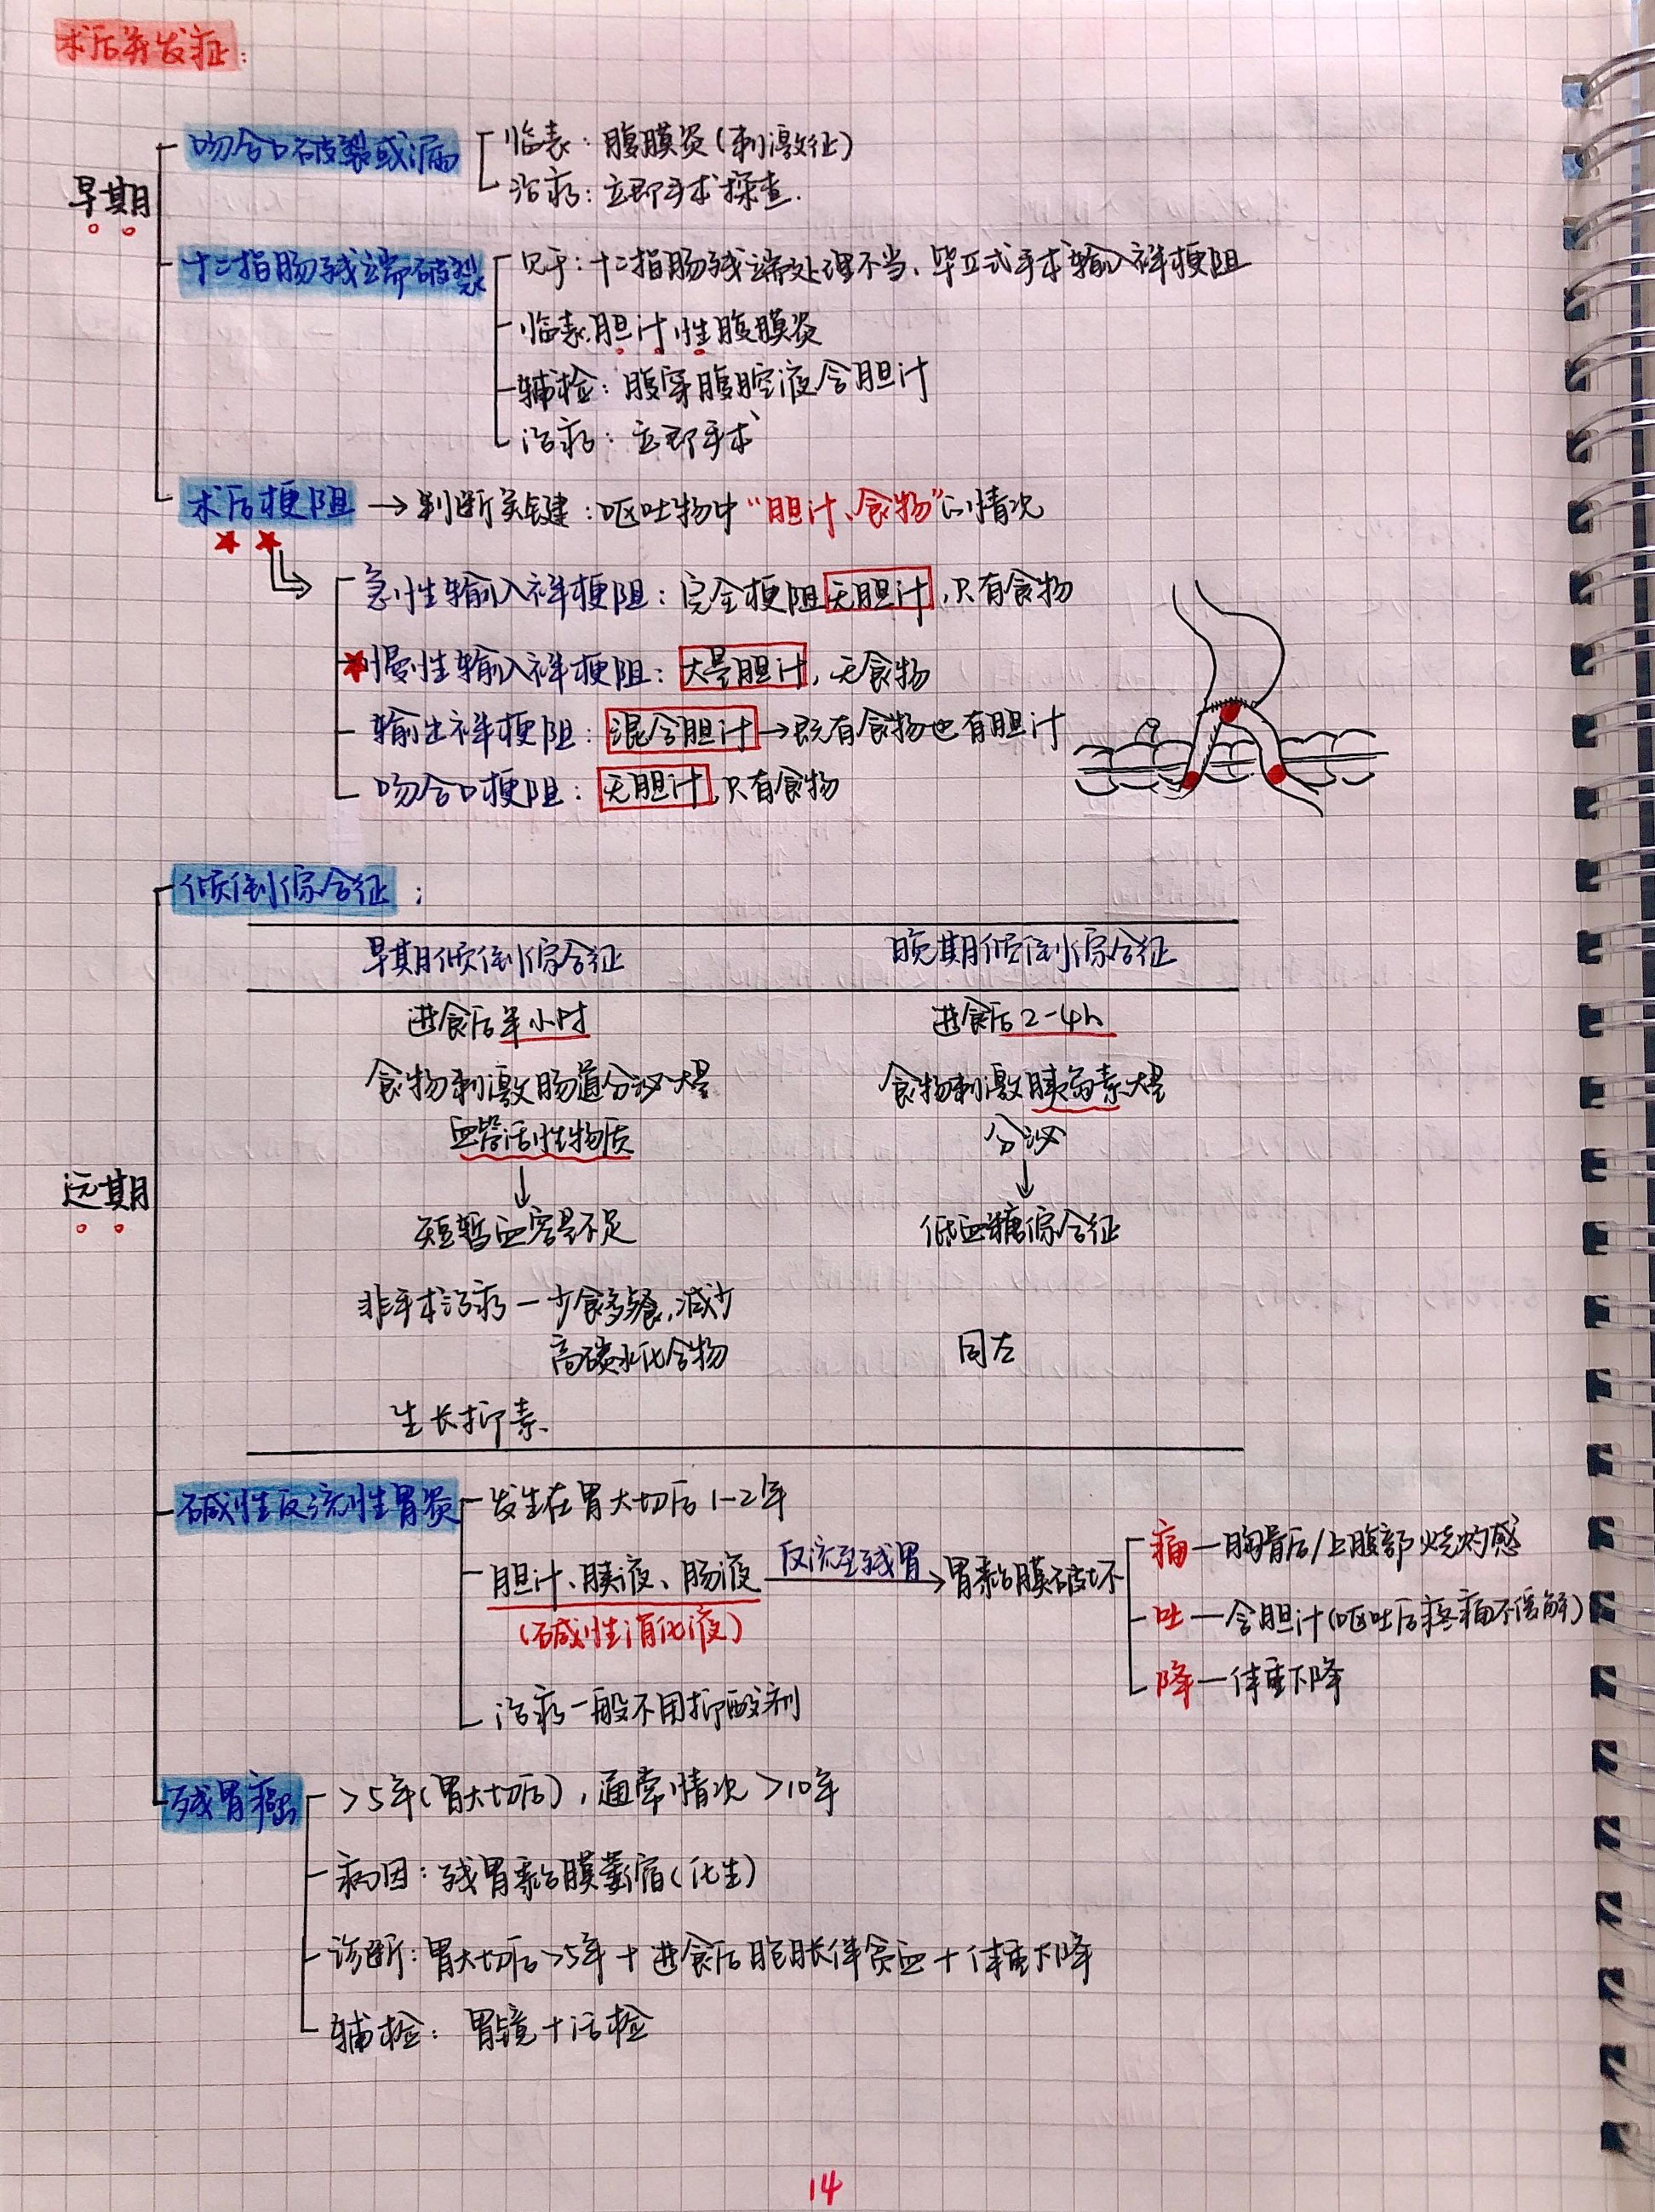 术后并发症:
早期
吻合口破裂或漏
临表: 腹膜炎(刺激征)
治疗: 立即手术探查.
十二指肠残端破裂
见于: 十二指肠残端处理不当、毕II式手术输入袢梗阻
临表: 胆汁性腹膜炎
辅检: 腹穿腹腔液含胆汁
治疗: 立即手术
术后梗阻 → 判断关键: 呕吐物中“胆汁、食物”的情况
急性输入袢梗阻: 完全梗阻 无胆汁, 只有食物
慢性输入袢梗阻: 大量胆汁, 无食物
输出袢梗阻: 混合胆汁 → 既有食物也有胆汁
吻合口梗阻: 无胆汁, 只有食物
远期
倾倒综合征:
早期倾倒综合征 晚期倾倒综合征
进食后半小时 进食后2-4h
食物刺激肠道分泌大量 食物刺激胰岛素大量
血管活性物质 分泌
↓ ↓
短暂血容量不足 低血糖综合征
非手术治疗 — 少食多餐, 减少
高碳水化合物 同左
生长抑素.
碱性反流性胃炎
发生在胃大切后1-2年
胆汁、胰液、肠液 反流至残胃 → 胃黏膜破坏
(碱性消化液)
痛 — 胸骨后/上腹部烧灼感
吐 — 含胆汁(呕吐后疼痛不缓解)
降 — 体重下降
治疗一般不用抑酸剂
残胃癌
>5年(胃大切后), 通常情况>10年
病因: 残胃黏膜萎缩(化生)
诊断: 胃大切后>5年 + 进食后饱胀伴贫血 + 体重下降
辅检: 胃镜+活检
14